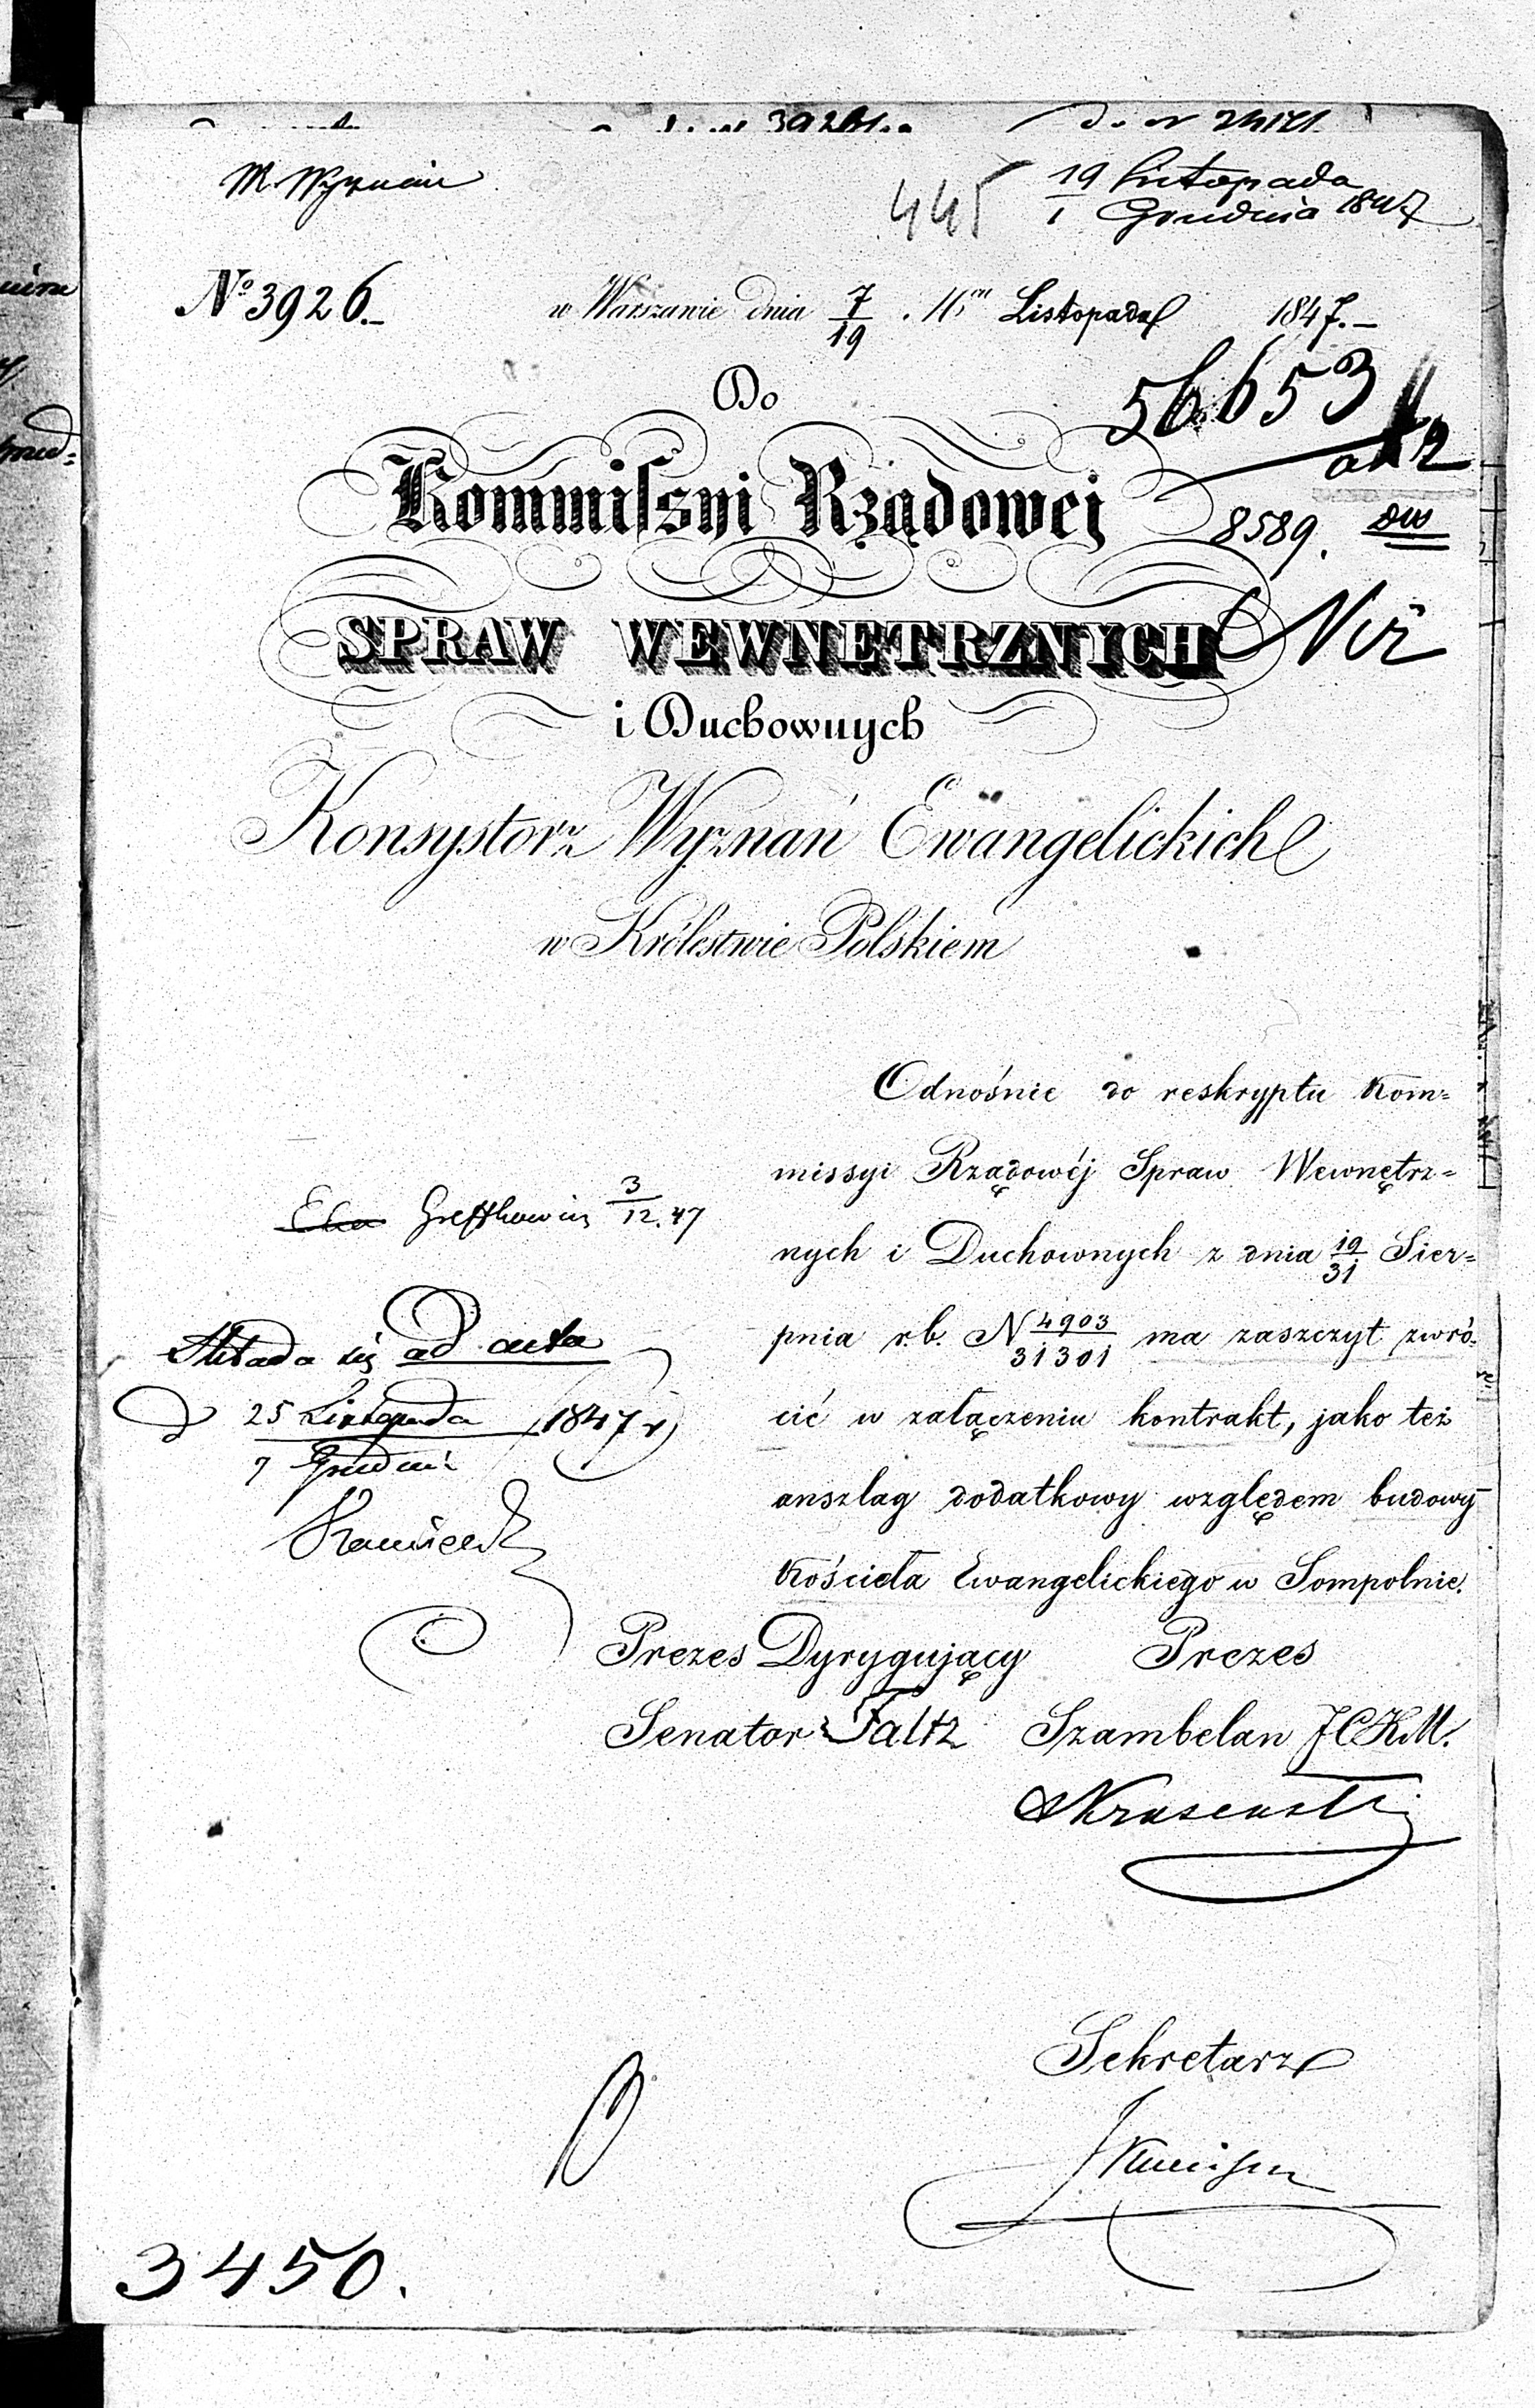 M. Wyznań
445
19 Listopada
1 Grudnia 1847
№ 3926.
w Warszawie dnia 7/19 Listopada 1847.
56653
8589.
Do
Kommissyi Rządowej
SPRAW WEWNĘTRZNYCH
i Duchownych
Konsystorz Wyznań Ewangelickich
w Królestwie Polskiem
Odnośnie do reskryptu Kom=
missyi Rządowéj Spraw Wewnętrz=
nych i Duchownych z dnia 19/31 Sier=
pnia r.b. N 4903/31301 ma zaszczyt zwró=
cić w załączeniu kontrakt, jako też
anszlag dodatkowy względem budowy
Kościoła Ewangelickiego w Sompolnie.
3/12.47
Składa się ad acta
d 25 Listopada 1847 r
7 Grudnia
Prezes Dyrygujący Prezes
Senator Faltz Szambelan J.C.K.M.
Krusenstern
Sekretarz
3450.